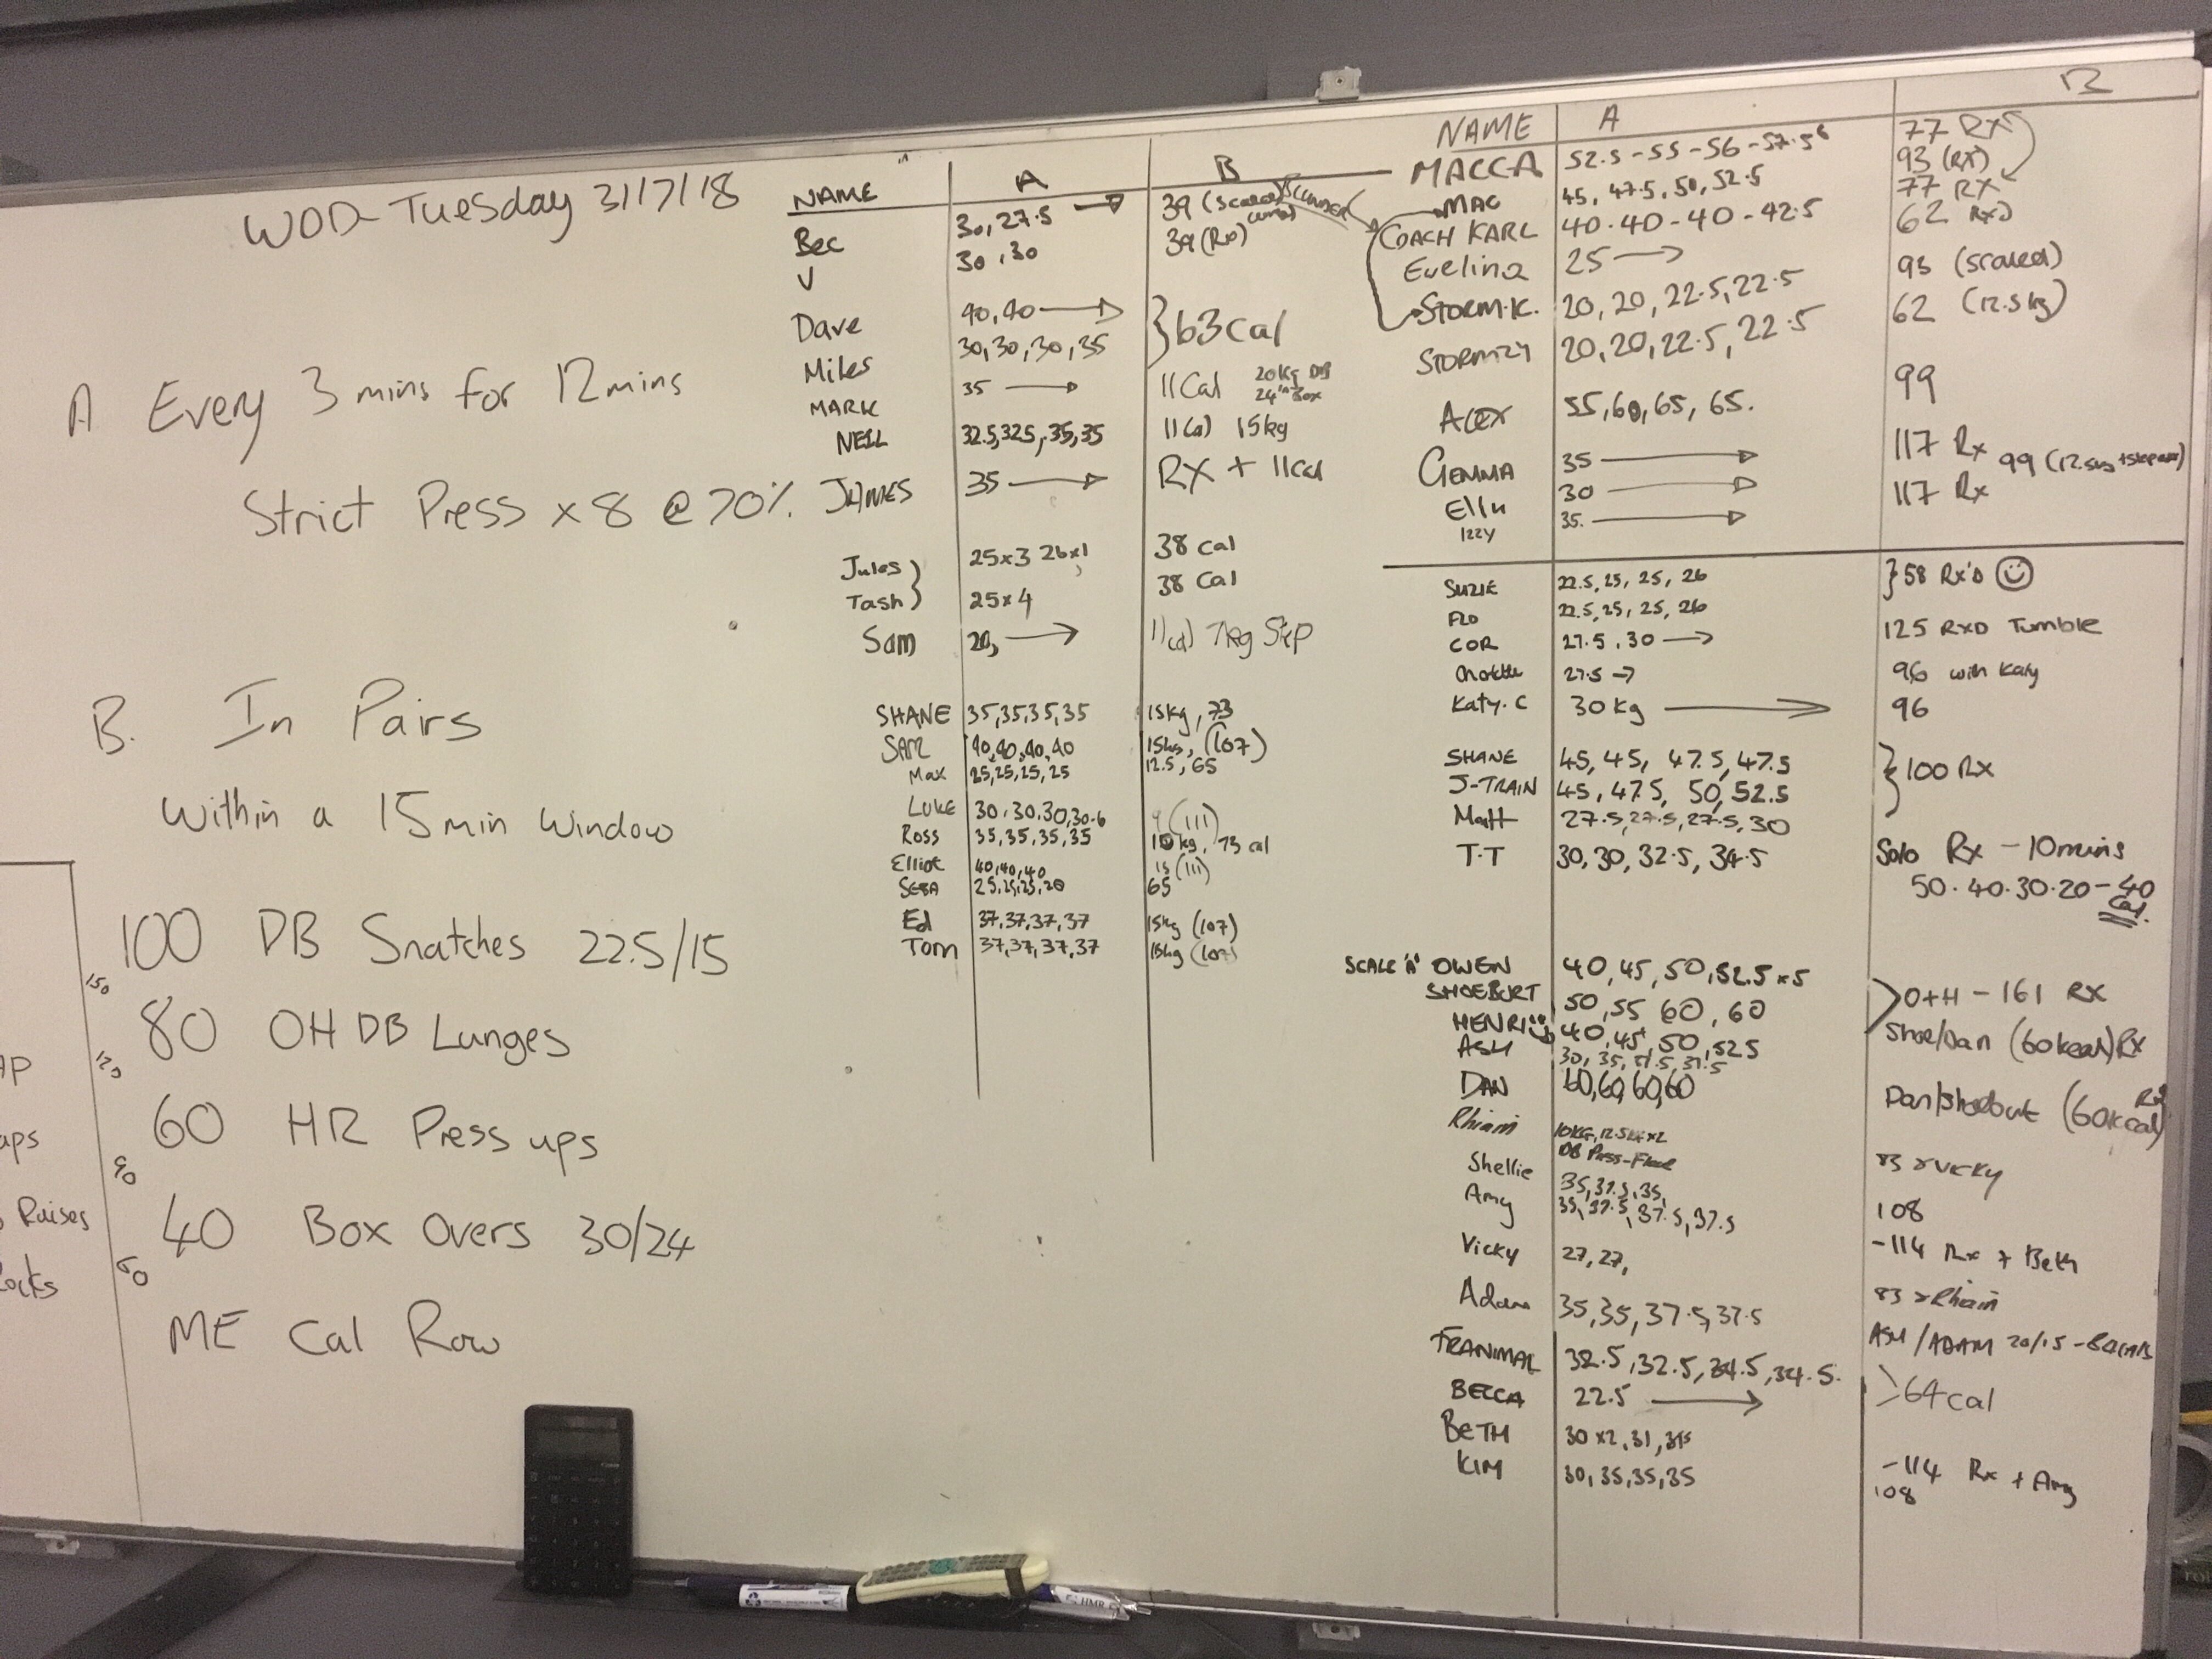 WOD - Tuesday 31/7/18
A Every 3 mins for 12 mins
Strict Press x 8 @ 70%
B. In Pairs
Within a 15 min Window
100 DB Snatches 22.5/15
150
80 OH DB Lunges
120
60 HR Press ups
90
40 Box Overs 30/24
60
ME Cal Row
AP
aps
Raises
ocks
NAME A B
Bec 30, 27.5 → 39 (scaled)
V 30, 30 39 (Rx)
Dave 40, 40 →
Miles 30, 30, 30, 35 } 63 Cal
MARK 35 → 11 Cal 20kg DB 24" Box
NEIL 32.5, 32.5, 35, 35 11 Cal 15kg
JAMES 35 → RX + 11 Cal
Jules } 25x3 26x1 38 Cal
Tash 25x4 38 Cal
Sam 20, → 11 Cal 7kg Step
SHANE 35, 35, 35, 35 15kg, 73
SAM 40, 40, 40, 40 15kg, (107)
Max 25, 25, 25, 25 12.5, 65
LUKE 30, 30, 30, 30-6 (111)
Ross 35, 35, 35, 35 kg, 73 cal
Elliot 40, 40, 40 15 (111)
SEBA 25, 25, 25, 20 65
Ed 37, 37, 37, 37 15kg (107)
Tom 37, 37, 37, 37 15kg (107)
NAME A B
MACCA 52.5 - 55 - 56 - 57.5 77 RX
MAC 45, 47.5, 50, 52.5 93 (RX)
COACH KARL 40 - 40 - 40 - 42.5 77 RX
Evelina 25 → 62 RXD
STORM.K. 20, 20, 22.5, 22.5 93 (scaled)
STORMZY 20, 20, 22.5, 22.5 62 (12.5kg)
ALEX 55, 60, 65, 65. 99
GEMMA 35 → 117 Rx
30 → 99
IZZY 35. → 117 Rx
SUZIE 22.5, 25, 25, 26 } 58 RX'D
FLO 22.5, 25, 25, 26
COR 27.5, 30 → 125 RXD Tumble
27.5 → 96 with Katy
Katy.C 30 kg → 96
SHANE 45, 45, 47.5, 47.5 } 100 RX
J-TRAIN 45, 47.5, 50, 52.5
Matt 27.5, 27.5, 27.5, 30
T.T 30, 30, 32.5, 34.5 Solo Rx - 10 mins
50.40.30.20 - 40 Cal.
SCALE 'A' OWEN 40, 45, 50, 52.5 x 5
SHOEBURT 50, 55 60, 60 O+H - 161 RX
HENRI 40, 45, 50, 52.5 Shoe/Dan (60kcal) RX
ASH 30, 35, 37.5, 37.5
DAN 60, 60, 60, 60 Dan/Shoeburt (60kcal) RX
Rhiain 10KG, 12.5KG x2 DB Press -
Shellie 35, 37.5, 35, 83 Vicky
Amy 35, 37.5, 37.5, 37.5 108
Vicky 27, 27, -114 Rx + Beth
Adam 35, 35, 37.5, 37.5 83 Rhiain
FRANIMAL 32.5, 32.5, 34.5, 34.5. ASH/ADAM 20/15 -
BECCA 22.5 → > 64 cal
BETH 30 x2, 31, -114 Rx + Amy
KIM 30, 35, 35, 35 108